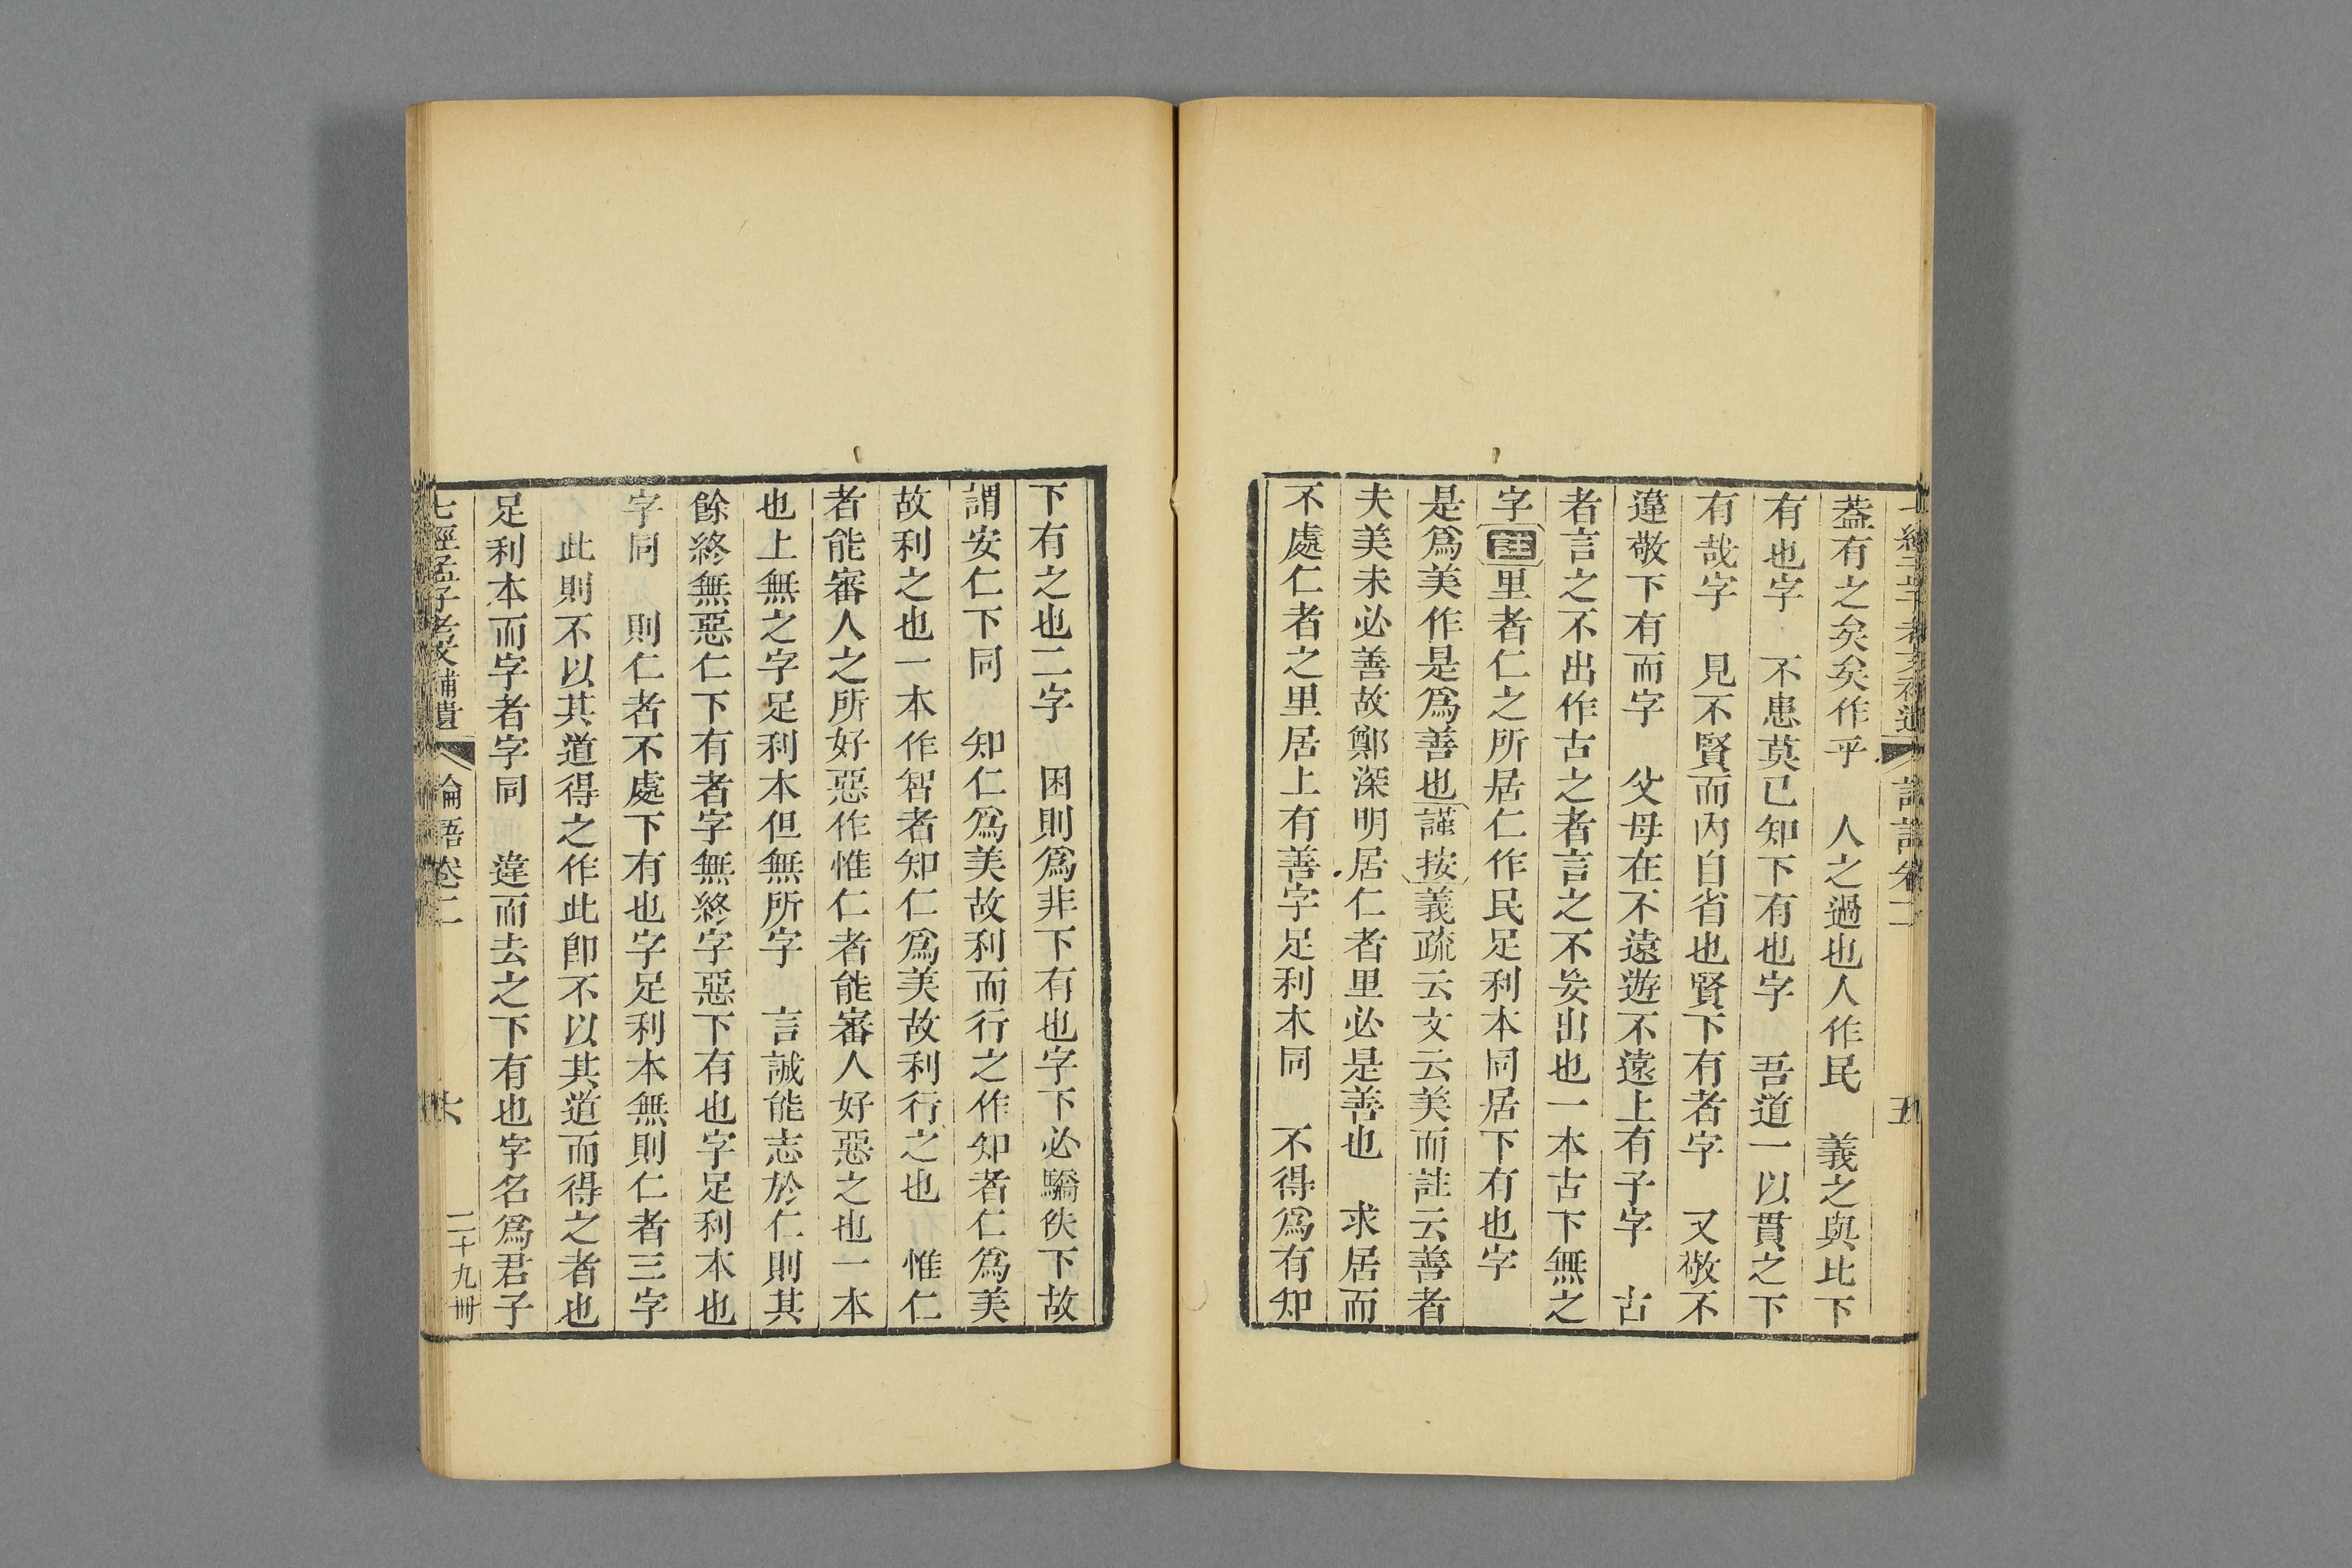 蓋有之矣矣作乎　人之過也人作民　義之與比下
有也字　不患莫己知下有也字　吾道一以貫之下
有哉字　見不賢而內自省也賢下有者字　又敬不
違敬下有而字　父母在不遠遊不遠上有子字　古
者言之不出作古之者言之不妄出也一本古下無之
字註里者仁之所居仁作民足利本同居下有也字
是爲美作是爲善也謹按義疏云文云美而註云善者
夫美未必善故鄭深明居仁者里必是善也　求居而
不處仁者之里居上有善字足利本同　不得爲有知
下有之也二字　困則爲非下有也字下必驕佚下故
謂安仁下同　知仁爲美故利而行之作知者仁爲美
故利之也一本作智者知仁爲美故利行之也　惟仁
者能審人之所好惡作惟仁者能審人好惡之也一本
也上無之字足利本但無所字　言誠能志於仁則其
餘終無惡仁下有者字無終字惡下有也字足利本也
字同　則仁者不處下有也字足利本無則仁者三字
此則不以其道得之作此卽不以其道而得之者也
足利本而字者字同　違而去之下有也字名爲君子
七經孟子考文補遺　論語卷二　六　二十九冊